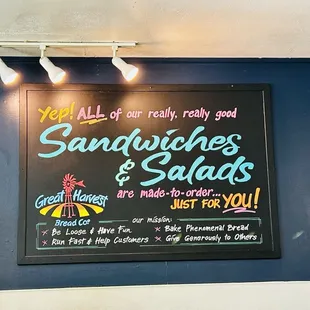 Yep! ALL of our really, really good
Sandwiches
& Salads
are made-to-order...
JUST FOR YOU!
Great Harvest
Bread Co.
our mission:
× Be Loose & Have Fun
× Bake Phenomenal Bread
× Run Fast & Help Customers
× Give Generously to Others